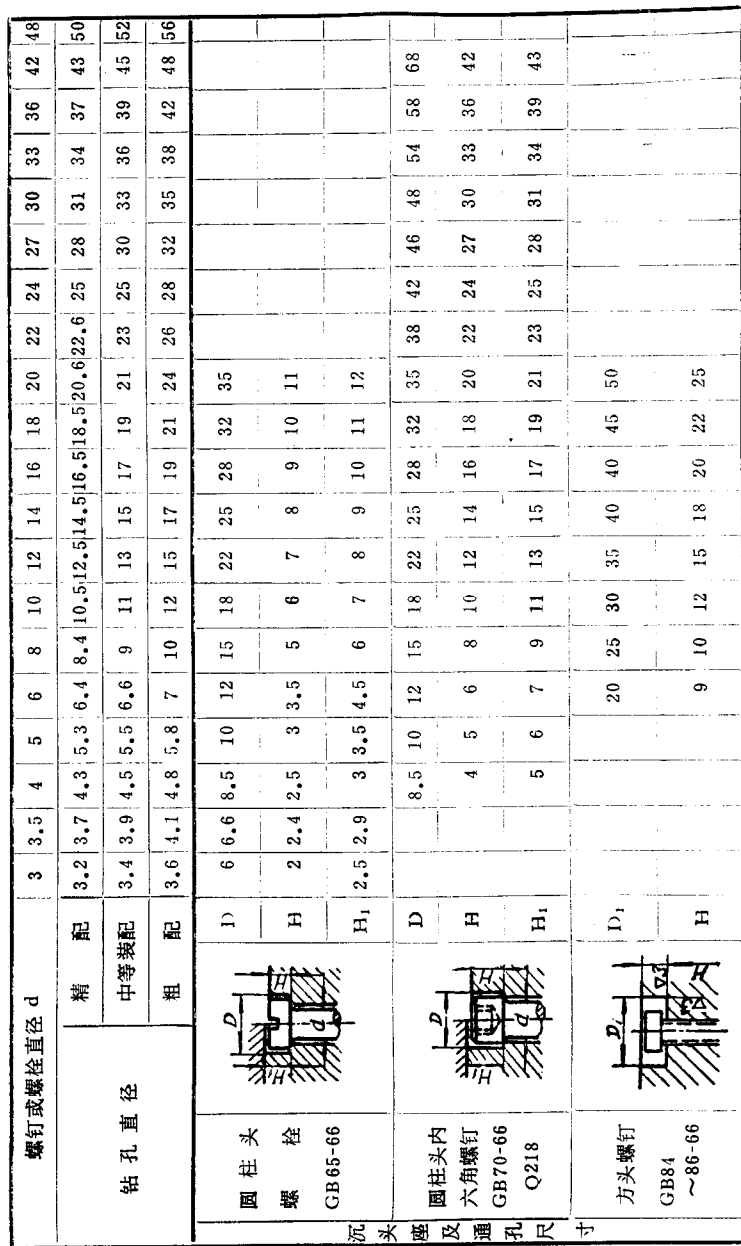 螺钉或螺栓直径 d 3 3.5 4 5 6 8 10 12 14 16 18 20 22 24 27 30 33 36 42 48
钻孔直径
精配 3.2 3.7 4.3 5.3 6.4 8.4 10.5 12.5 14.5 16.5 18.5 20.6 22.6 25 28 31 34 37 43 50
中等装配 3.4 3.9 4.5 5.5 6.6 9 11 13 15 17 19 21 23 25 30 33 36 39 45 52
粗配 3.6 4.1 4.8 5.8 7 10 12 15 17 19 21 24 26 28 32 35 38 42 48 56
沉头座及通孔尺寸
圆柱头
螺栓
GB65-66
D
H
H
d
D 6 6.6 8.5 10 12 15 18 22 25 28 32 35
H 2 2.4 2.5 3 3.5 5 6 7 8 9 10 11
H₁ 2.5 2.9 3 3.5 4.5 6 7 8 9 10 11 12
圆柱头内
六角螺钉
GB70-66
Q218
D
H
H
d
D 8.5 10 12 15 18 22 25 28 32 35 38 42 46 48 54 58 68
H 4 5 6 8 10 12 14 16 18 20 22 24 27 30 33 36 42
H₁ 5 6 7 9 11 13 15 17 19 21 23 25 28 31 34 39 43
方头螺钉
GB84
～86-66
D₁
▽3
H
D₁ 20 25 30 35 40 40 45 50
H 9 10 12 15 18 20 22 25